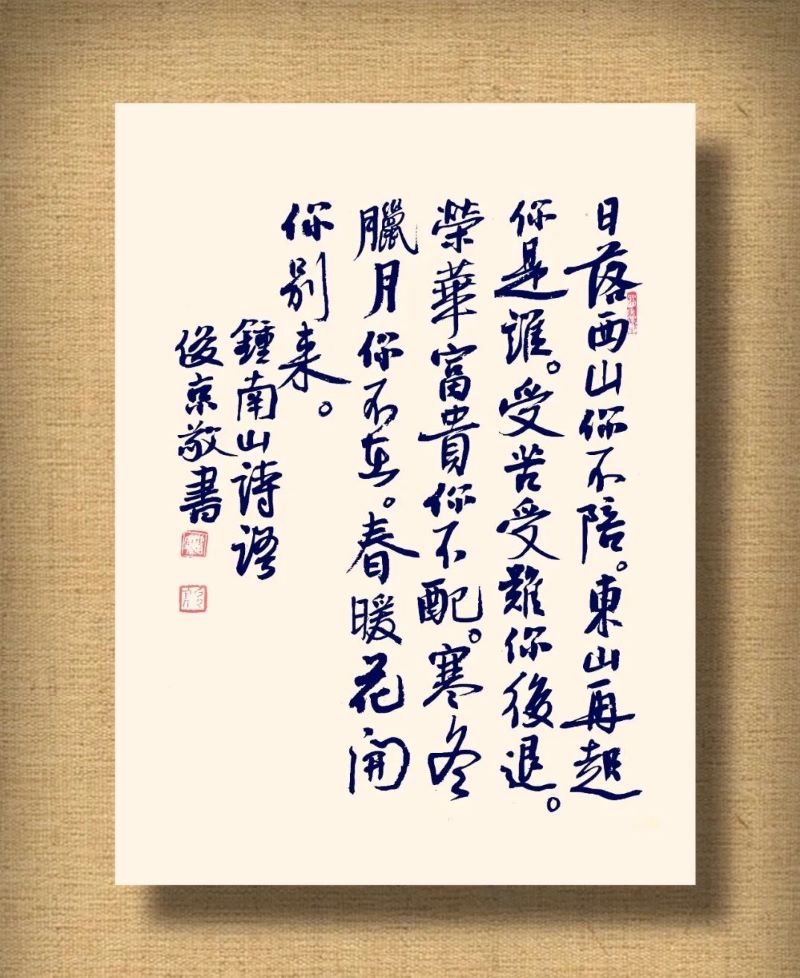 日落西山你不陪。東山再起
你是誰。受苦受難你後退。
榮華富貴你不配。寒冬
臘月你不在。春暖花開
你别来。
鍾南山詩語
俊京敬書